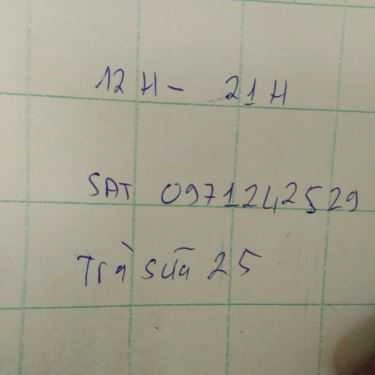 12H - 21H
SAT 0971242529
Trà sữa 25